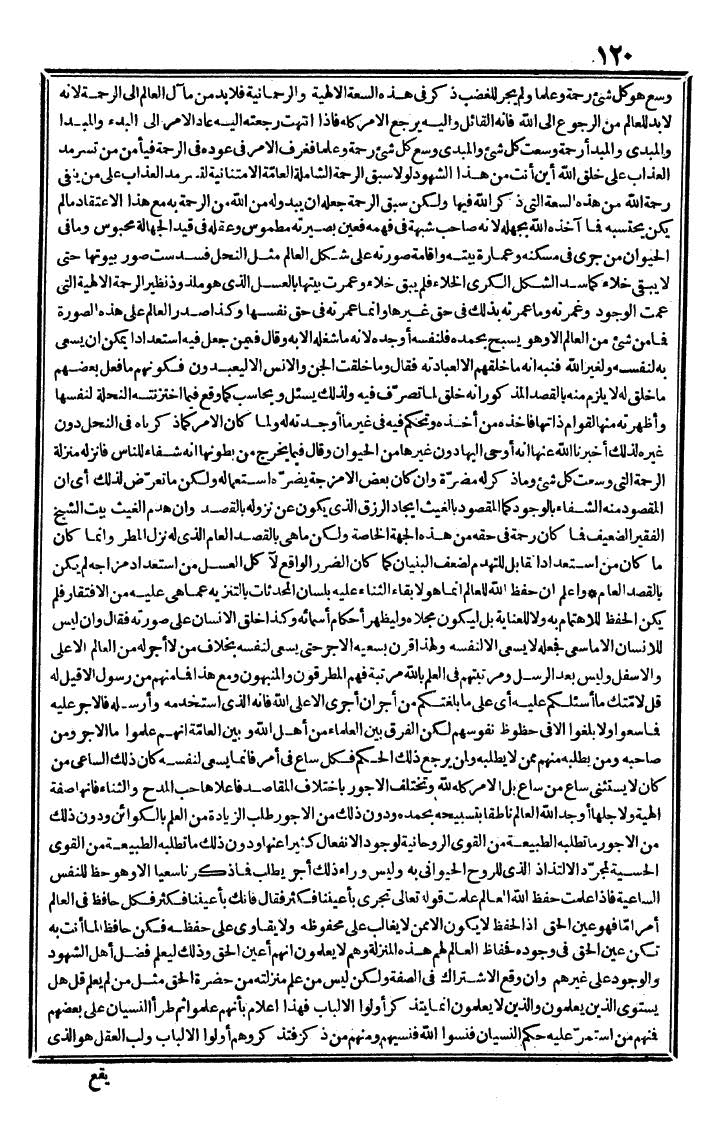 ١٢٠
وسع هو كل شئ رحمة وعلما ولم يجر للغضب ذكر فى هذه السعة الالهية والرحمانية فلابد من مآل العالم الى الرحمة لانه
لابد للعالم من الرجوع الى الله فانه القائل واليه يرجع الامر كله فاذا انتهت رجعته اليه عاد الامر الى البدء والمبدا
والمبدى والمبدأ رحمة وسعت كل شئ والمبدى وسع كل شئ رحمة وعلما فغرف الامر فى عوده فى الرحمة فيأمن من تسرمد
العذاب على خلق الله أين أنت من هذا الشهود لولا سبق الرحمة الشاملة العامّة الامتنانية لتسرمد العذاب على من ينفى
رحمة الله من هذه السعة التى ذكر الله فيها ولكن سبق الرحمة جعله ان يبدو له من الله من الرحمة به مع هذا الاعتقاد مالم
يكن يحتسبه فما آخذه الله بجهله لانه صاحب شبهة فى فهمه فعين بصيرته مطموس وعقله فى قيد الجهالة محبوس وما فى
الحيوان من جرى فى مسكنه وعمارة بيته واقامة صورته على شكل العالم مثل النحل فسدست صور بيوتها حتى
لا يبقى خلاء كما سد الشكل الكرى الخلاء فلم يبق خلاء وعمرت بيتها بالعسل الذى هو ملذوذ نظير الرحمة الالهية التى
عمت الوجود وغمرته وما عمرته بذلك فى حق غيرها وانما عمرته فى حق نفسها وكذا صدر العالم على هذه الصورة
فما من شئ من العالم الا وهو يسبح بحمده فلنفسه أوجده لانه ما شغله الا به وقال فيمن جعل فيه استعدادا يمكن ان يسعى
به لنفسه ولغير الله فنبه انه ما خلقهم الا لعبادته فقال وما خلقت الجن والانس الا ليعبدون فكونهم ما فعل بعضهم
ما خلق له لا يلزم منه بالقصد المذكور انه خلق لما تصرّف فيه ولذلك يسئل ويحاسب كما وقع فيما اختزنته النحلة لنفسها
وأظهرته منها لقوام ذاتها فأخذه من أخذه وتحكم فيه فى غير ما أوجدته له ولما كان الامر كما ذكرناه فى النحل دون
غيره لذلك أخبرنا الله عنها انه أوحى اليها دون غيرها من الحيوان وقال فيما يخرج من بطونها انه شفاء للناس فانزله منزلة
الرحمة التى وسعت كل شئ وما ذكر له مضرّة وان كان بعض الامزجة يضرّه استعماله ولكن ما تعرّض لذلك أى ان
المقصود منه الشفاء بالوجود كما المقصود بالغيث ايجاد الرزق الذى يكون عن نزوله بالقصد وان هدم الغيث بيت الشيخ
الفقير الضعيف فما كان رحمة فى حقه من هذه الجهة الخاصة ولكن ما هى بالقصد العام الذى له نزل المطر وانما كان
ما كان من استعداد القابل للتهدم لضعف البنيان كما كان الضرر الواقع لآكل العسل من استعداد مزاجه لم يكن
بالقصد العام * واعلم ان حفظ الله للعالم انما هو لابقاء الثناء عليه بلسان المحدثات بالتنزيه عما هى عليه من الافتقار فلم
يكن الحفظ للاهتمام به ولا للعناية بل ليكون مجلاه وليظهر أحكام أسمائه وكذا خلق الانسان على صورته فقال وان ليس
للانسان الا ما سعى فجعله لا يسعى الا لنفسه ولهذا قرن بسعيه الاجر حتى يسعى لنفسه بخلاف من لا أجر له من العالم الاعلى
والاسفل وليس بعد الرسل ومرتبتهم فى العلم بالله مرتبة فهم المطرقون والمنبهون ومع هذا فما منهم من رسول الا قيل له
قل لامّتك ما أسئلكم عليه أى على ما بلغتكم من أجر ان أجرى الا على الله فانه الذى استخدمه وأرسله فالاجر عليه
فما سعوا ولا بلغوا الا فى حظوظ نفوسهم لكن الفرق بين العلماء من أهل الله وبين العامّة انهم علموا ما الاجر ومن
صاحبه ومن يطلبه منهم ممن لا يطلبه وان يرجع ذلك الحكم فكل ساع فى أمر فانما يسعى لنفسه كان ذلك الساعى من
كان لا يستثنى ساع من ساع بل الامر كله لله وتختلف الاجور باختلاف المقاصد فاعلاها حب المدح والثناء فانها صفة
الهية ولاجلها أوجد الله العالم ناطقا بتسبيحه بحمده ودون ذلك من الاجور طلب الزيادة من العلم بالكوائن ودون ذلك
من الاجور ما تطلبه الطبيعة من القوى الروحانية لوجود الانفعال كثيرا عنها ودون ذلك ما تطلبه الطبيعة من القوى
الحسية لمجرّد الالتذاذ الذى للروح الحيوانى به وليس وراء ذلك أجر يطلب فما ذكرنا سعيا الا وهو حظ للنفس
الساعية فاذا علمت حفظ الله العالم علمت قوله تعالى تجرى بأعيننا فكثر فقال فانك بأعيننا فكثر فكل حافظ فى العالم
أمرا مّا فهو عين الحق اذ الحفظ لا يكون الا ممن لا يغالب على محفوظه ولا يقاوى على حفظه فكن حافظا لما أنت به
تكن عين الحق فى وجوده فحفاظ العالم لهم هذه المنزلة وهم لا يعلمون انهم أعين الحق وذلك ليعلم فضل أهل الشهود
والوجود على غيرهم وان وقع الاشتراك فى الصفة ولكن ليس من علم منزلته من حضرة الحق مثل من لم يعلم قل هل
يستوى الذين يعلمون والذين لا يعلمون انما يتذكر أولوا الالباب فهذا اعلام بأنهم علموا ثم طرأ النسيان على بعضهم
فمنهم من استمرّ عليه حكم النسيان فنسوا الله فنسيهم ومنهم من ذكر فتذكر وهم أولوا الالباب ولب العقل هو الذى
يقع